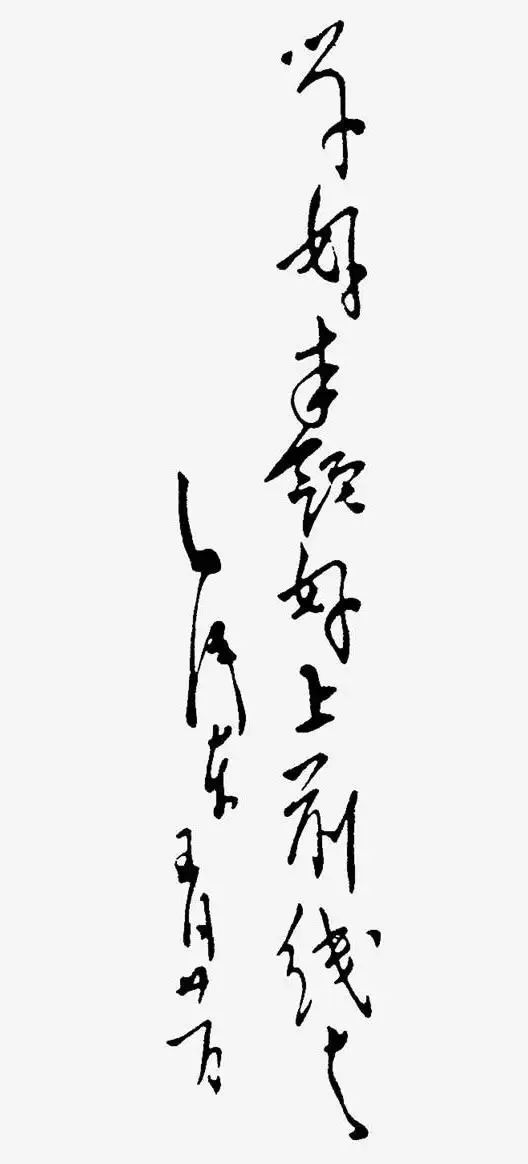 学好本领好上前线去
毛泽东 五月廿一日